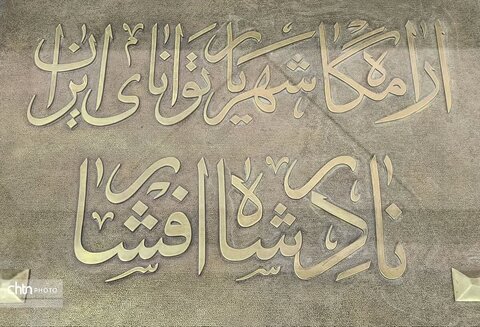 آرامگاه شهریار توانای ایران
نادر شاه افشار
chtn PHOTO